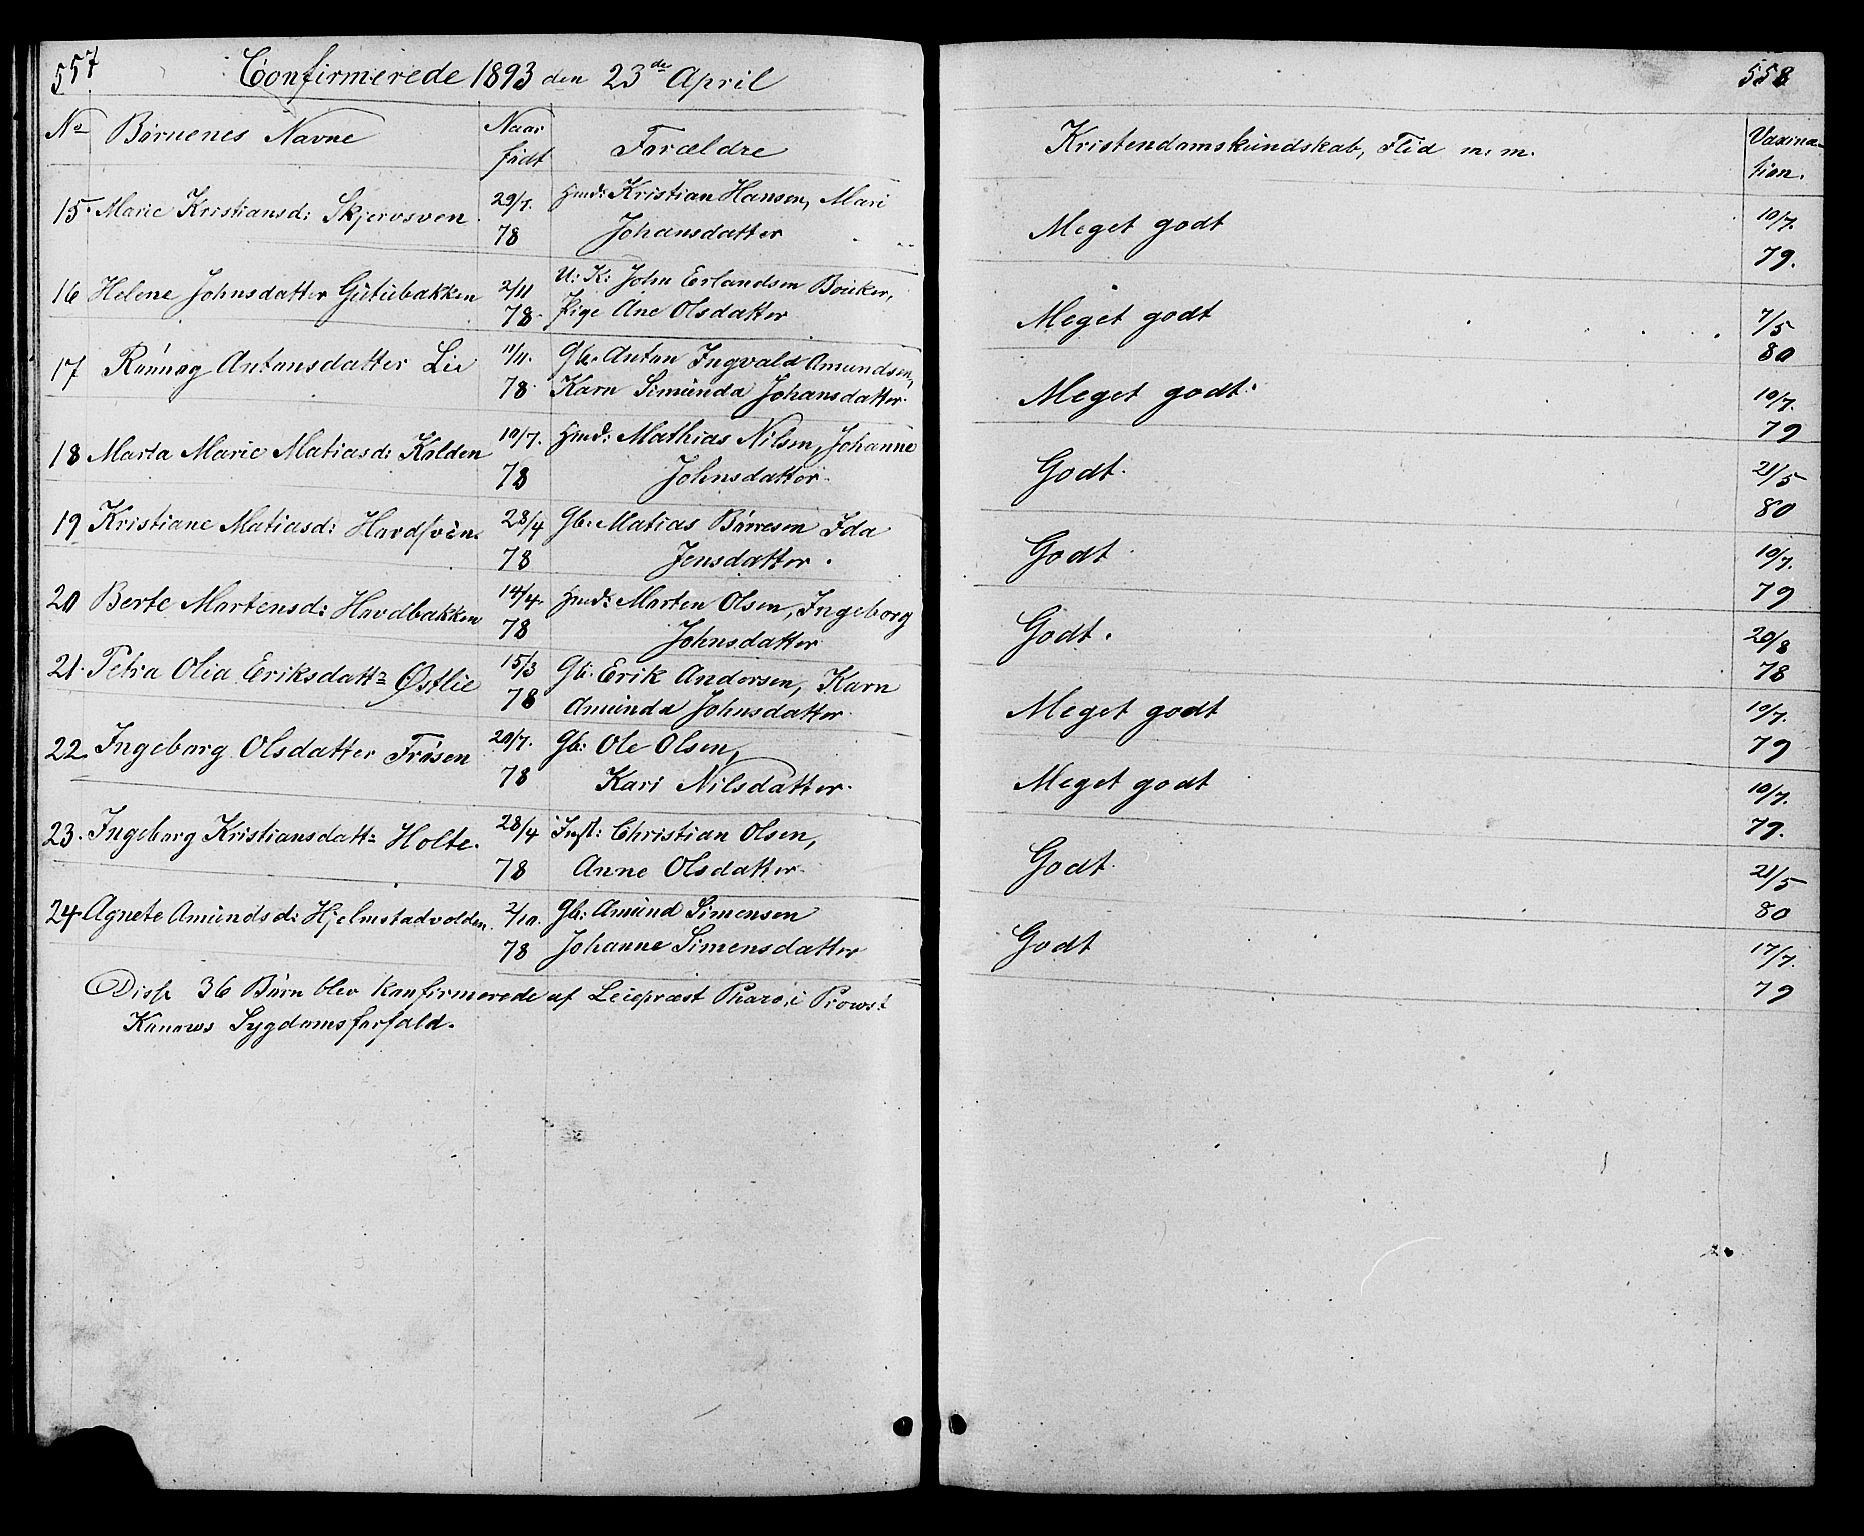 557
Confirmerede 1893 den 23de April
No Børnenes Navne Naar født Forældre
15. Marie Kristiansd: Skjervsven 29/7. 78 Hmd: Kristian Hansen, Mari
Johansdatter
16 Helene Johnsdatter Gutubakken 2/11 78. U: K: John Erlandsen
Pige Ane Olsdatter
17 Rønnog Antonsdatter Lie 11/11. 78. Gb. Anton Ingvald Amundsen,
Karn Simunda Johansdatter.
18 Marta Marie Matiasd: Kolden 10/7. 78 Hmd: Mathias Nilsen, Johanne
Johnsdatter.
19 Kristiane Matiasd: 28/4 78 Gb. Matias Børresen Ida
Jensdatter.
20 Berte Martensd: Hovdbakken 14/4. 78 Hmd: Morten Olsen, Ingeborg
Johnsdatter
21. Petra Olia Eriksdattr Østlie 15/3 78 Gb. Erik Andersen, Karn
Amunda Johnsdatter.
22. Ingeborg Olsdatter Frøsen 20/7. 78 Gb: Ole Olsen,
Kari Nilsdatter.
23. Ingeborg Kristiansdattr Holte. 28/4 78 Inst: Christian Olsen,
Anne Olsdatter.
24. Agnete Amundsd: Hjelmstadvolden. 2/10. 78 Gb: Amund Simensen
Johanne Simensdatter
Disse 36 Børn blev konfirmerede af Leiepræst i Provst
Kanows Sygdomsforfald.
558
Kristendomskundskab, Flid m. m. Vaxina-
tion.
Meget godt 10/7.
79.
Meget godt 7/5
80
Meget godt. 10/7.
79
Godt. 21/5
80
Godt 10/7.
79
Godt. 20/8
78
Meget godt 10/7.
79
Meget godt 10/7.
79.
Godt 21/5
80
Godt 17/7.
79